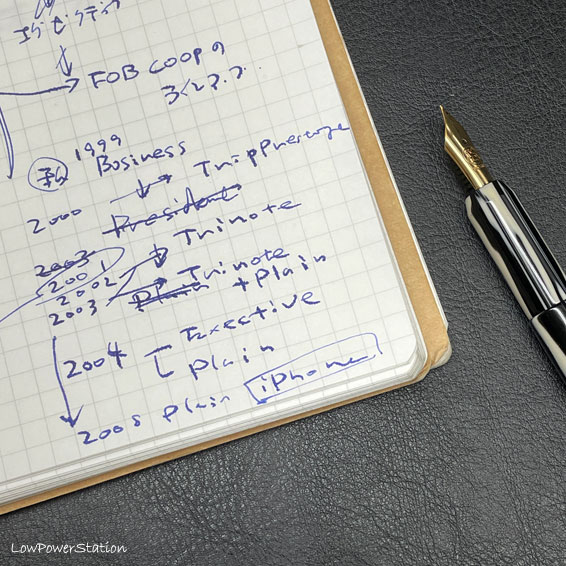 エグゼクティブ
FOB COOPの
1999
Business
2000
President
Trinote
2003
2001
2002
2003 Plain Trinote
+ Plain
2004 Exective
Plain
2008 Plain iPhone
LowPowerStation